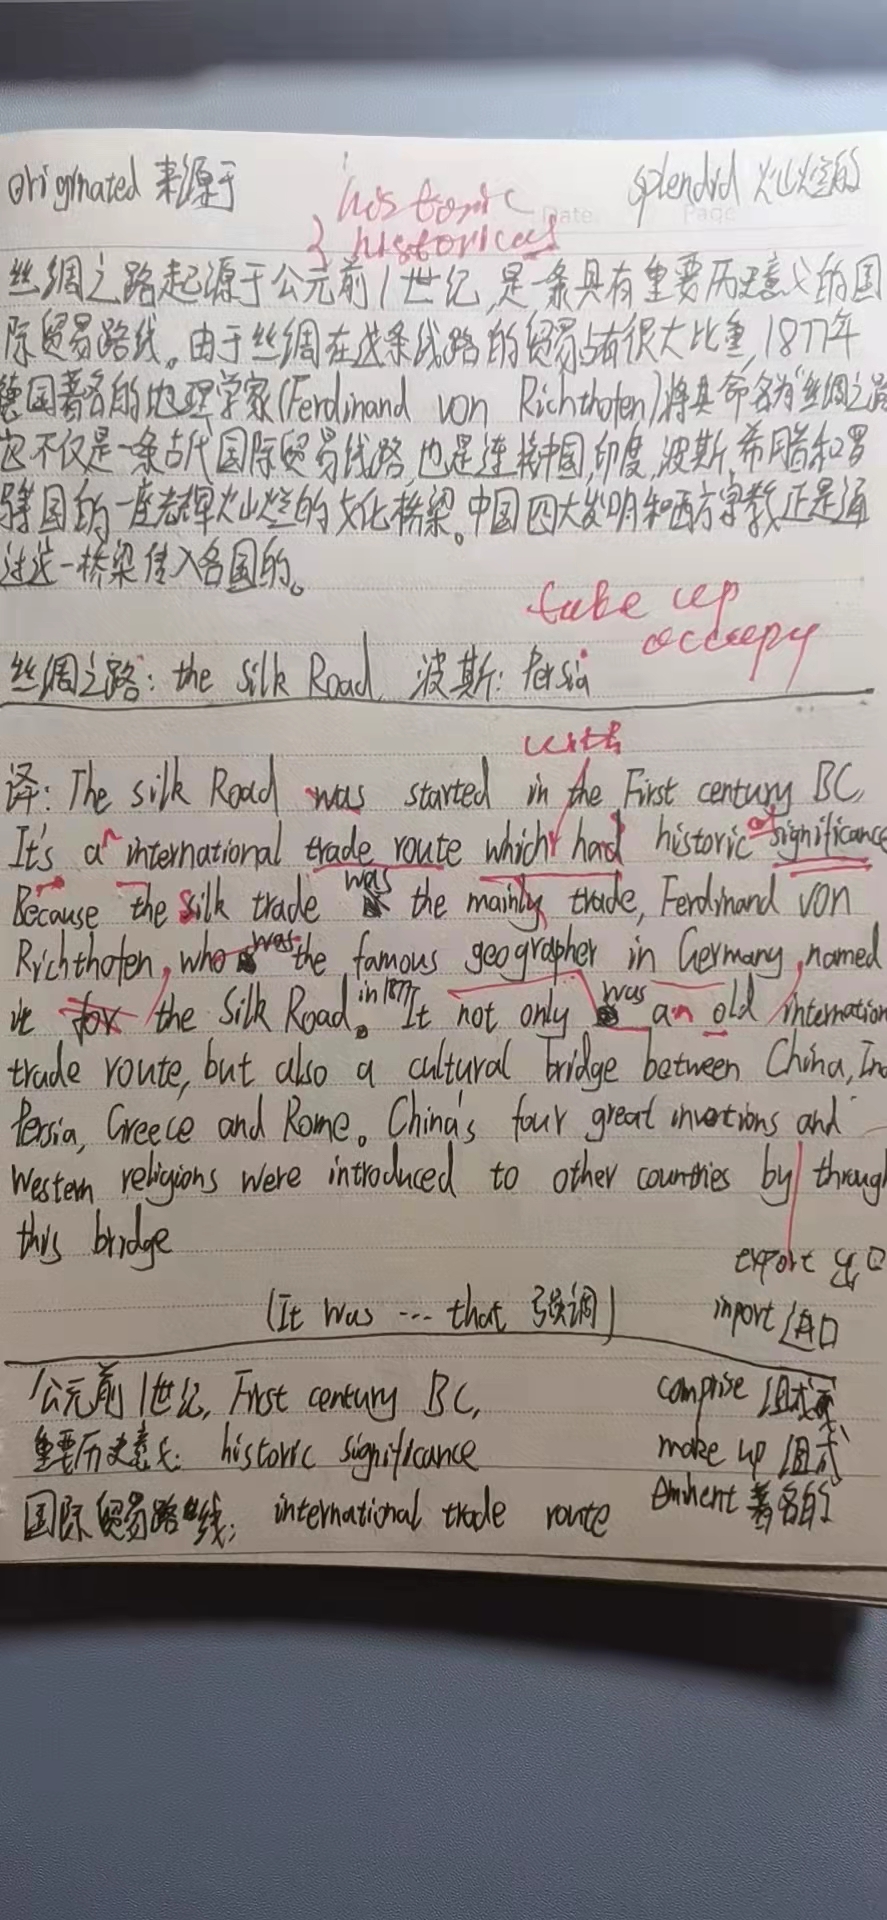 originated 来源于 splendid 灿烂的
historic
historical
Date Page
丝绸之路起源于公元前1世纪,是一条具有重要历史意义的国
际贸易路线。由于丝绸在这条线路的贸易占有很大比重,1877年
德国著名的地理学家(Ferdinand von Richthofen)将其命名为"丝绸之路
它不仅是一条古代国际贸易线路,也是连接中国,印度,波斯,希腊和罗
马等国的一座老牌灿烂的文化桥梁。中国四大发明和西方宗教正是通
过这一桥梁传入各国的。
take up
occupy
丝绸之路: the Silk Road 波斯: Persia
with
译: The silk Road was started in the First century BC,
It's a international trade route which had historic of significance
Because the silk trade was the mainly trade, Ferdinand von
Richthofen, who was the famous geographer in Germany, named
it for the Silk Road in 1877. It not only was an old internation
trade route, but also a cultural bridge between China, Ind
Persia, Greece and Rome. China's four great invertions and
Western religions were introduced to other countries by through
this bridge
export 出口
(It was ... that 强调)
inport 进口
公元前1世纪, First century BC,
comprise
重要历史意义: historic significance
make up 组成
国际贸易路线: international trade route
eminent 著名的